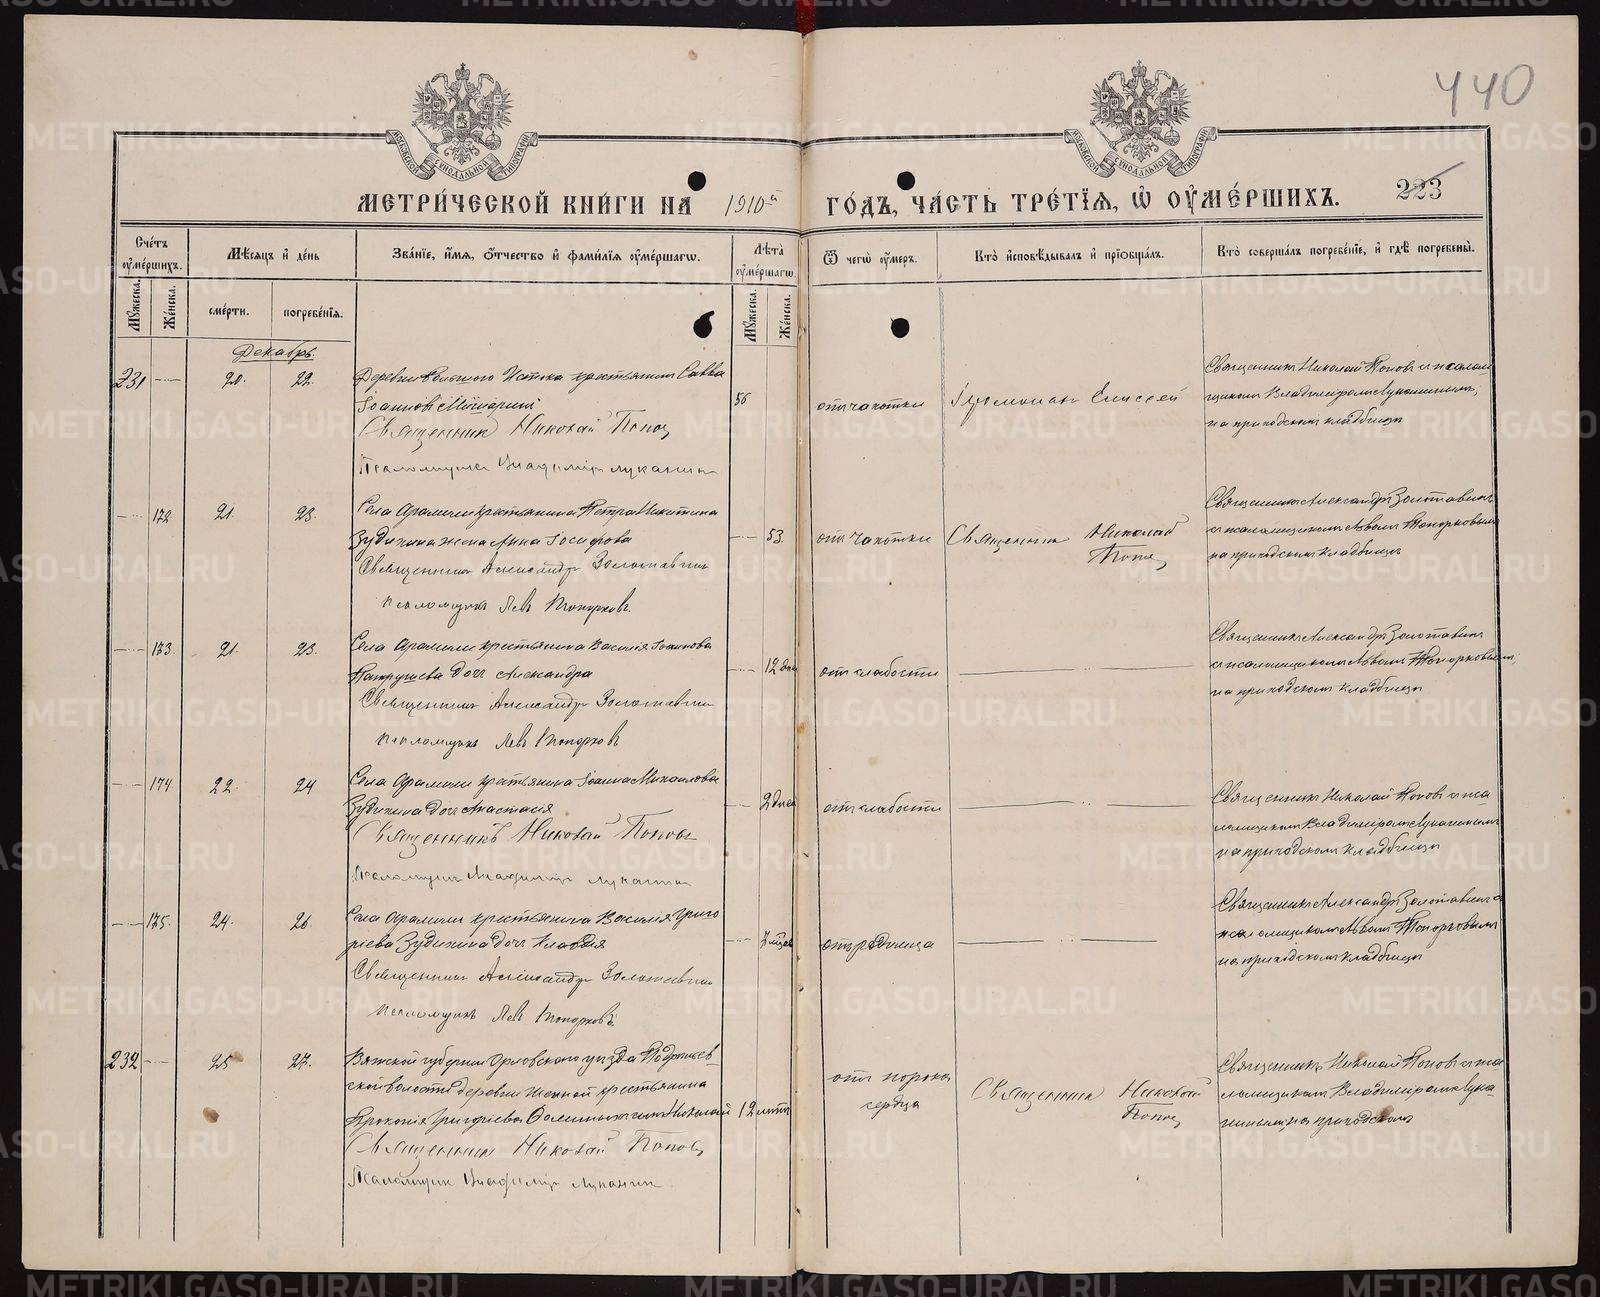 440
МОСКОВСКОЙ СУНОДАЛЬНОЙ ТИПОГРАФІИ
МОСКОВСКОЙ СУНОДАЛЬНОЙ ТИПОГРАФІИ
МЕТРИ́ЧЕСКОЙ КНИ́ГИ НА 1910-й ГО́ДЪ, ЧА́СТЬ ТРЕ́ТІѦ, Ѡ ОУМЕ́РШИХЪ.
223
Сче́тъ оуме́ршихъ.
Мѣ́сяцъ и де́нь
Зва́ніе, и́мя, о́тчество и фами́лія оуме́ршагѡ.
Лѣта̀ оуме́ршагѡ.
Ѿ чегѡ̀ оу́меръ.
Кто̀ исповѣ́дывалъ и пріобща́лъ.
Кто̀ соверша́лъ погребе́ніе, и гдѣ̀ погребены̀.
Му́жеска.
Же́нска.
сме́рти.
погребе́нія.
Му́жеска.
Же́нска.
Декабрь.
231
20.
22.
Деревни Большого Истока крестьянин Савва
Іоаннов
Священник Николай Попов
Псаломщик Владимір Луканин
56
от чахотки
Іеромонах Елисей
Священник Николай Попов и псалом
щиком Владиміром Луканиным,
на приходском кладбище
172
21.
23.
Села Арамили крестьянина Петра Никитина
Зудихина жена Анна Іосифова
Священник Александр Золотавин
псаломщик Лев Топорков.
53
от чахотки
Священник Николай
Попов
Священник Александр Золотавин
и псаломщиком Львом Топорковым
на приходском кладбище
173
21.
23.
Села Арамили крестьянина Василія Іоаннова
Патрушева дочь Александра
Священник Александр Золотавин
псаломщик Лев Топорков
12 дней
от слабости
Священник Александр Золотавин
и псаломщиком Львом Топорковым,
на приходском кладбище
174
22.
24
Села Арамили крестьянина Іоанна Михаилова
Зудихина дочь Анастасія
Священникъ Николай Попов
Псаломщик Владимір Луканин
2 дней
от слабости
Священник Николай Попов и пса
ломщиком Владиміром Луканиным
на приходском кладбище
175.
24.
26.
Села Арамили крестьянина Василія Григо
ріева Зудихина дочь Клавдія
Священник Александр Золотавин
псаломщик Лев Топорковъ.
от родимца
Священник Александр Золотавин с
псаломщиком Львом Топорковым
на приходском кладбище
232
25
27.
Вятской губерніи Орловского уезда
ской волости деревни крестьянина
Прокопія Григоріева сын Николай
Священник Николай Попов
Псаломщик Владимір Луканин
12 лет
от порока
сердца
Священник Николай
Попов
Священник Николай Попов и пса
ломщиком Владиміром Лука
ниным, на приходском
METRIKI.GASO-URAL.RU